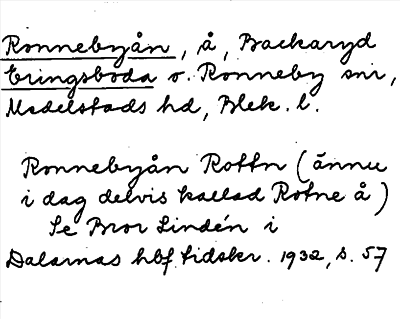 Ronnebyån, å, Backaryd
Eringsboda o. Ronneby snr,
Medelstads hd, Blek. l.
Ronnebyån Rottn (ännu
i dag delvis kallad Rotne å)
Se Bror Lindén i
Dalarnas hbf tidskr. 1932, s. 57